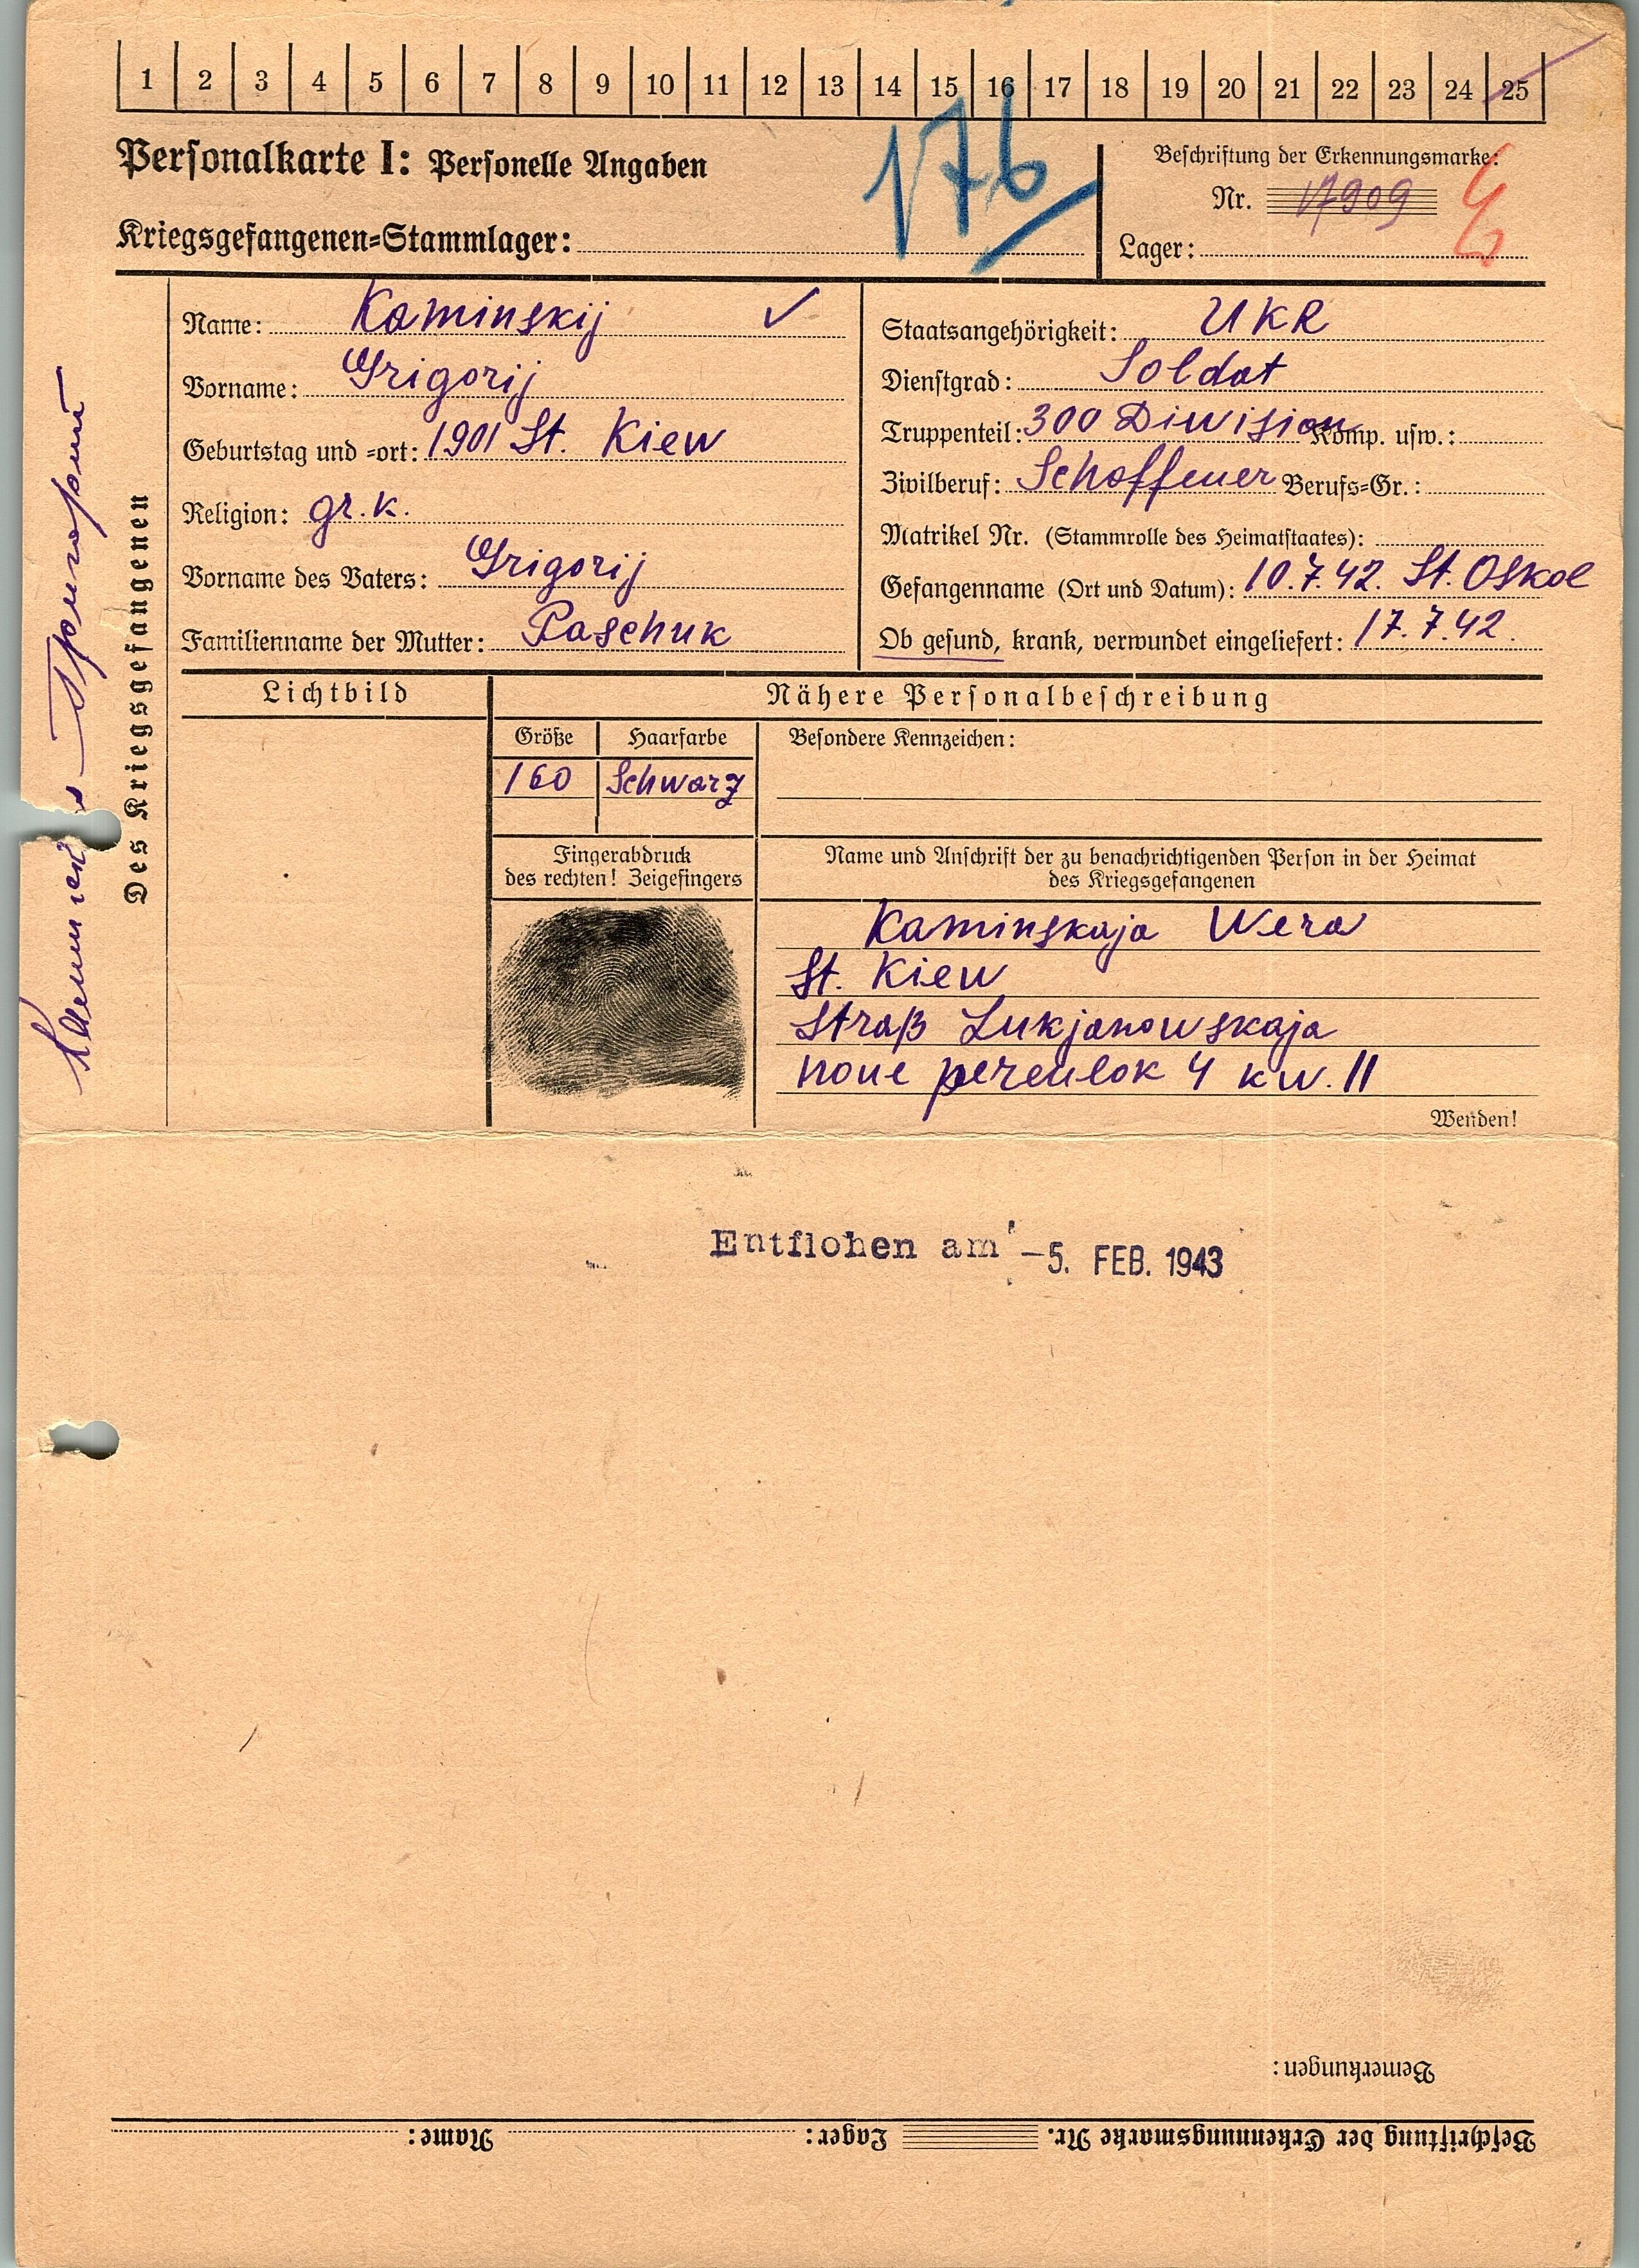 1 2 3 4 5 6 7 8 9 10 11 12 13 14 15 16 17 18 19 20 21 22 23 24 25
Personalkarte I: Personelle Angaben
176
Beschriftung der Erkennungsmarke:
Nr. 17909
Kriegsgefangenen-Stammlager:
Lager:
Des Kriegsgefangenen
Name: Kaminskij ✓
Vorname: Grigorij
Geburtstag und -ort: 1901 St. Kiew
Religion: gr. k.
Vorname des Vaters: Grigorij
Familienname der Mutter: Paschuk
Staatsangehörigkeit: UKR
Dienstgrad: Soldat
Truppenteil: 300 Diwision Komp. usw.:
Zivilberuf: Schoffeuer Berufs-Gr.:
Matrikel Nr. (Stammrolle des Heimatstaates):
Gefangenname (Ort und Datum): 10.7.42. St. Oskol
Ob gesund, krank, verwundet eingeliefert: 17.7.42.
Lichtbild
Nähere Personalbeschreibung
Größe Haarfarbe Besondere Kennzeichen:
160 Schwarz
Fingerabdruck
des rechten! Zeigefingers
Name und Anschrift der zu benachrichtigenden Person in der Heimat
des Kriegsgefangenen
Kaminskaja Wera
St. Kiew
Straß Lukjanowskaja
noue pereulok 4 kw. 11
Wenden!
Entflohen am -5. FEB. 1943
Bemerkungen:
Beschriftung der Erkennungsmarke Nr. Lager: Name: